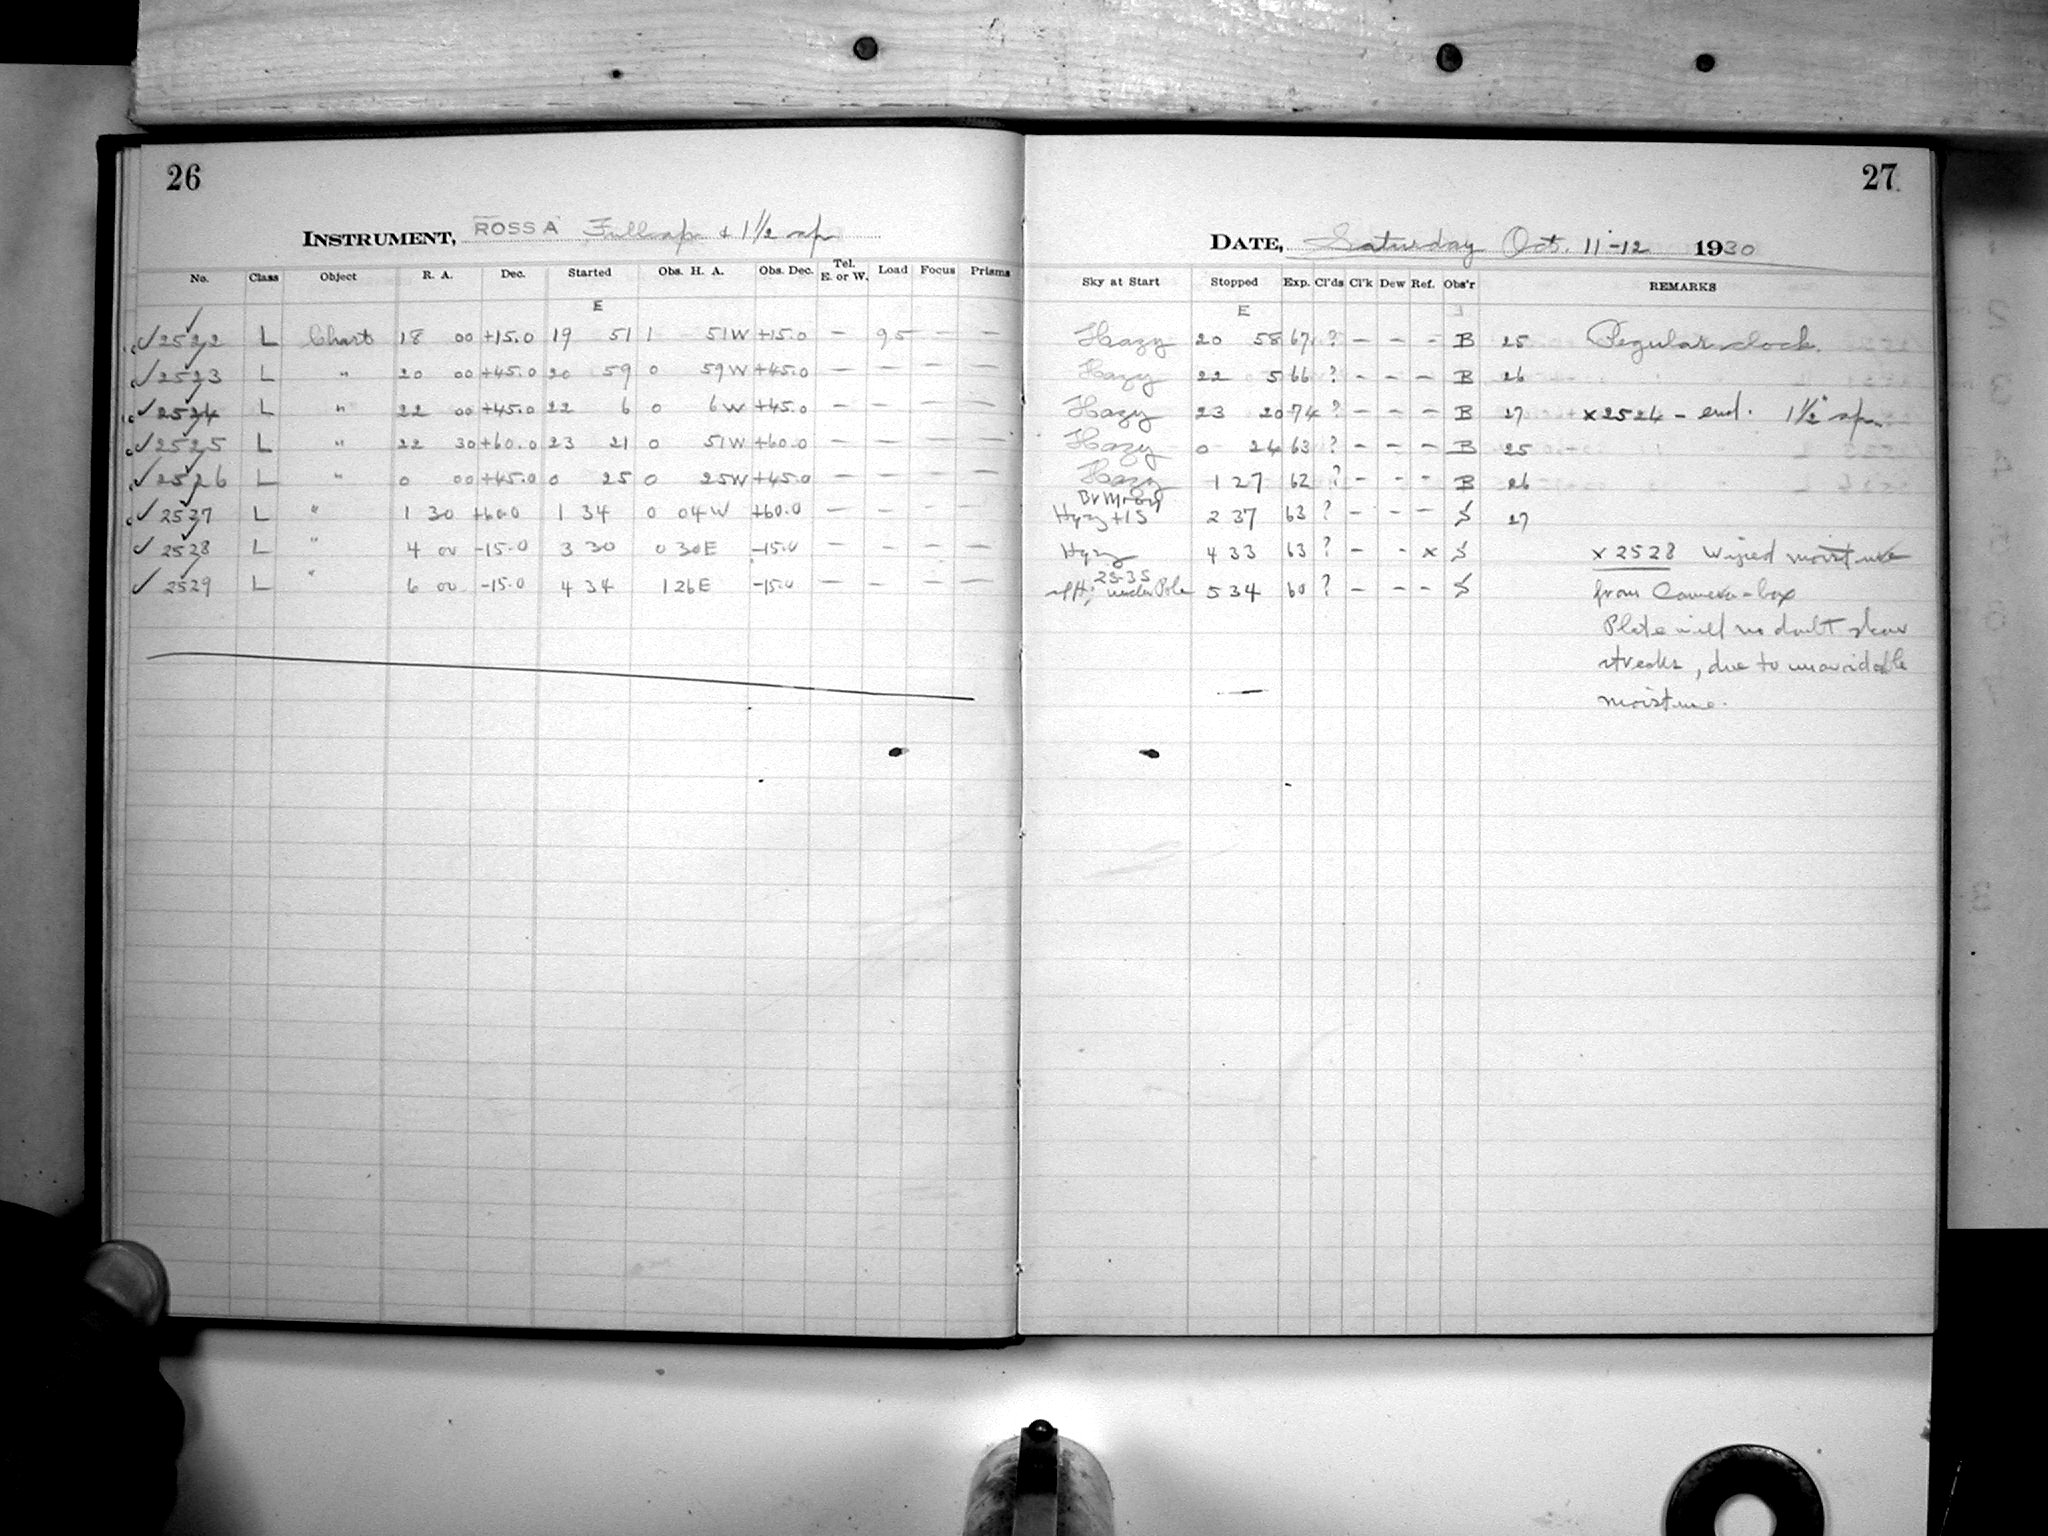 26
INSTRUMENT, ROSS A Full ap. & 1 1/2 ap
No. Class Object R. A. Dec. Started Obs. H. A. Obs. Dec. Tel. E. or W. Load Focus Prisms
E
✓2522 L Chart 18 00 +15.0 19 51 1 51W +15.0 — 95 — —
✓2523 L " 20 00 +45.0 20 59 0 59W +45.0 — — — —
✓2524 L " 22 00 +45.0 22 6 0 6W +45.0 — — — —
✓2525 L " 22 30 +60.0 23 21 0 51W +60.0 — — — —
✓2526 L " 0 00 +45.0 0 25 0 25W +45.0 — — — —
✓2527 L " 1 30 +60.0 1 34 0 04W +60.0 — — — —
✓2528 L " 4 00 -15.0 3 30 0 30E -15.0 — — — —
✓2529 L " 6 00 -15.0 4 34 1 26E -15.0 — — — —
27
DATE, Saturday Oct. 11-12 1930
Sky at Start Stopped Exp. Cl'ds Cl'k Dew Ref. Obs'r REMARKS
E
Hazy 20 58 67 ? — — — B 25 Regular clock.
Hazy 22 5 66 ? — — — B 26
Hazy 23 20 74 ? — — — B 27 x2524 - end. 1 1/2" ap.
Hazy 0 24 63 ? — — — B 25
Hazy 1 27 62 ? — — — B 26
Br Moon
Hazy +15 2 37 63 ? — — — S 27
Hazy 4 33 63 ? — — x S x 2528 Wiped moisture
25-35
under Pole 5 34 60 ? — — — S from Camera-box
Plate will no doubt show
streaks, due to unavoidable
moisture.